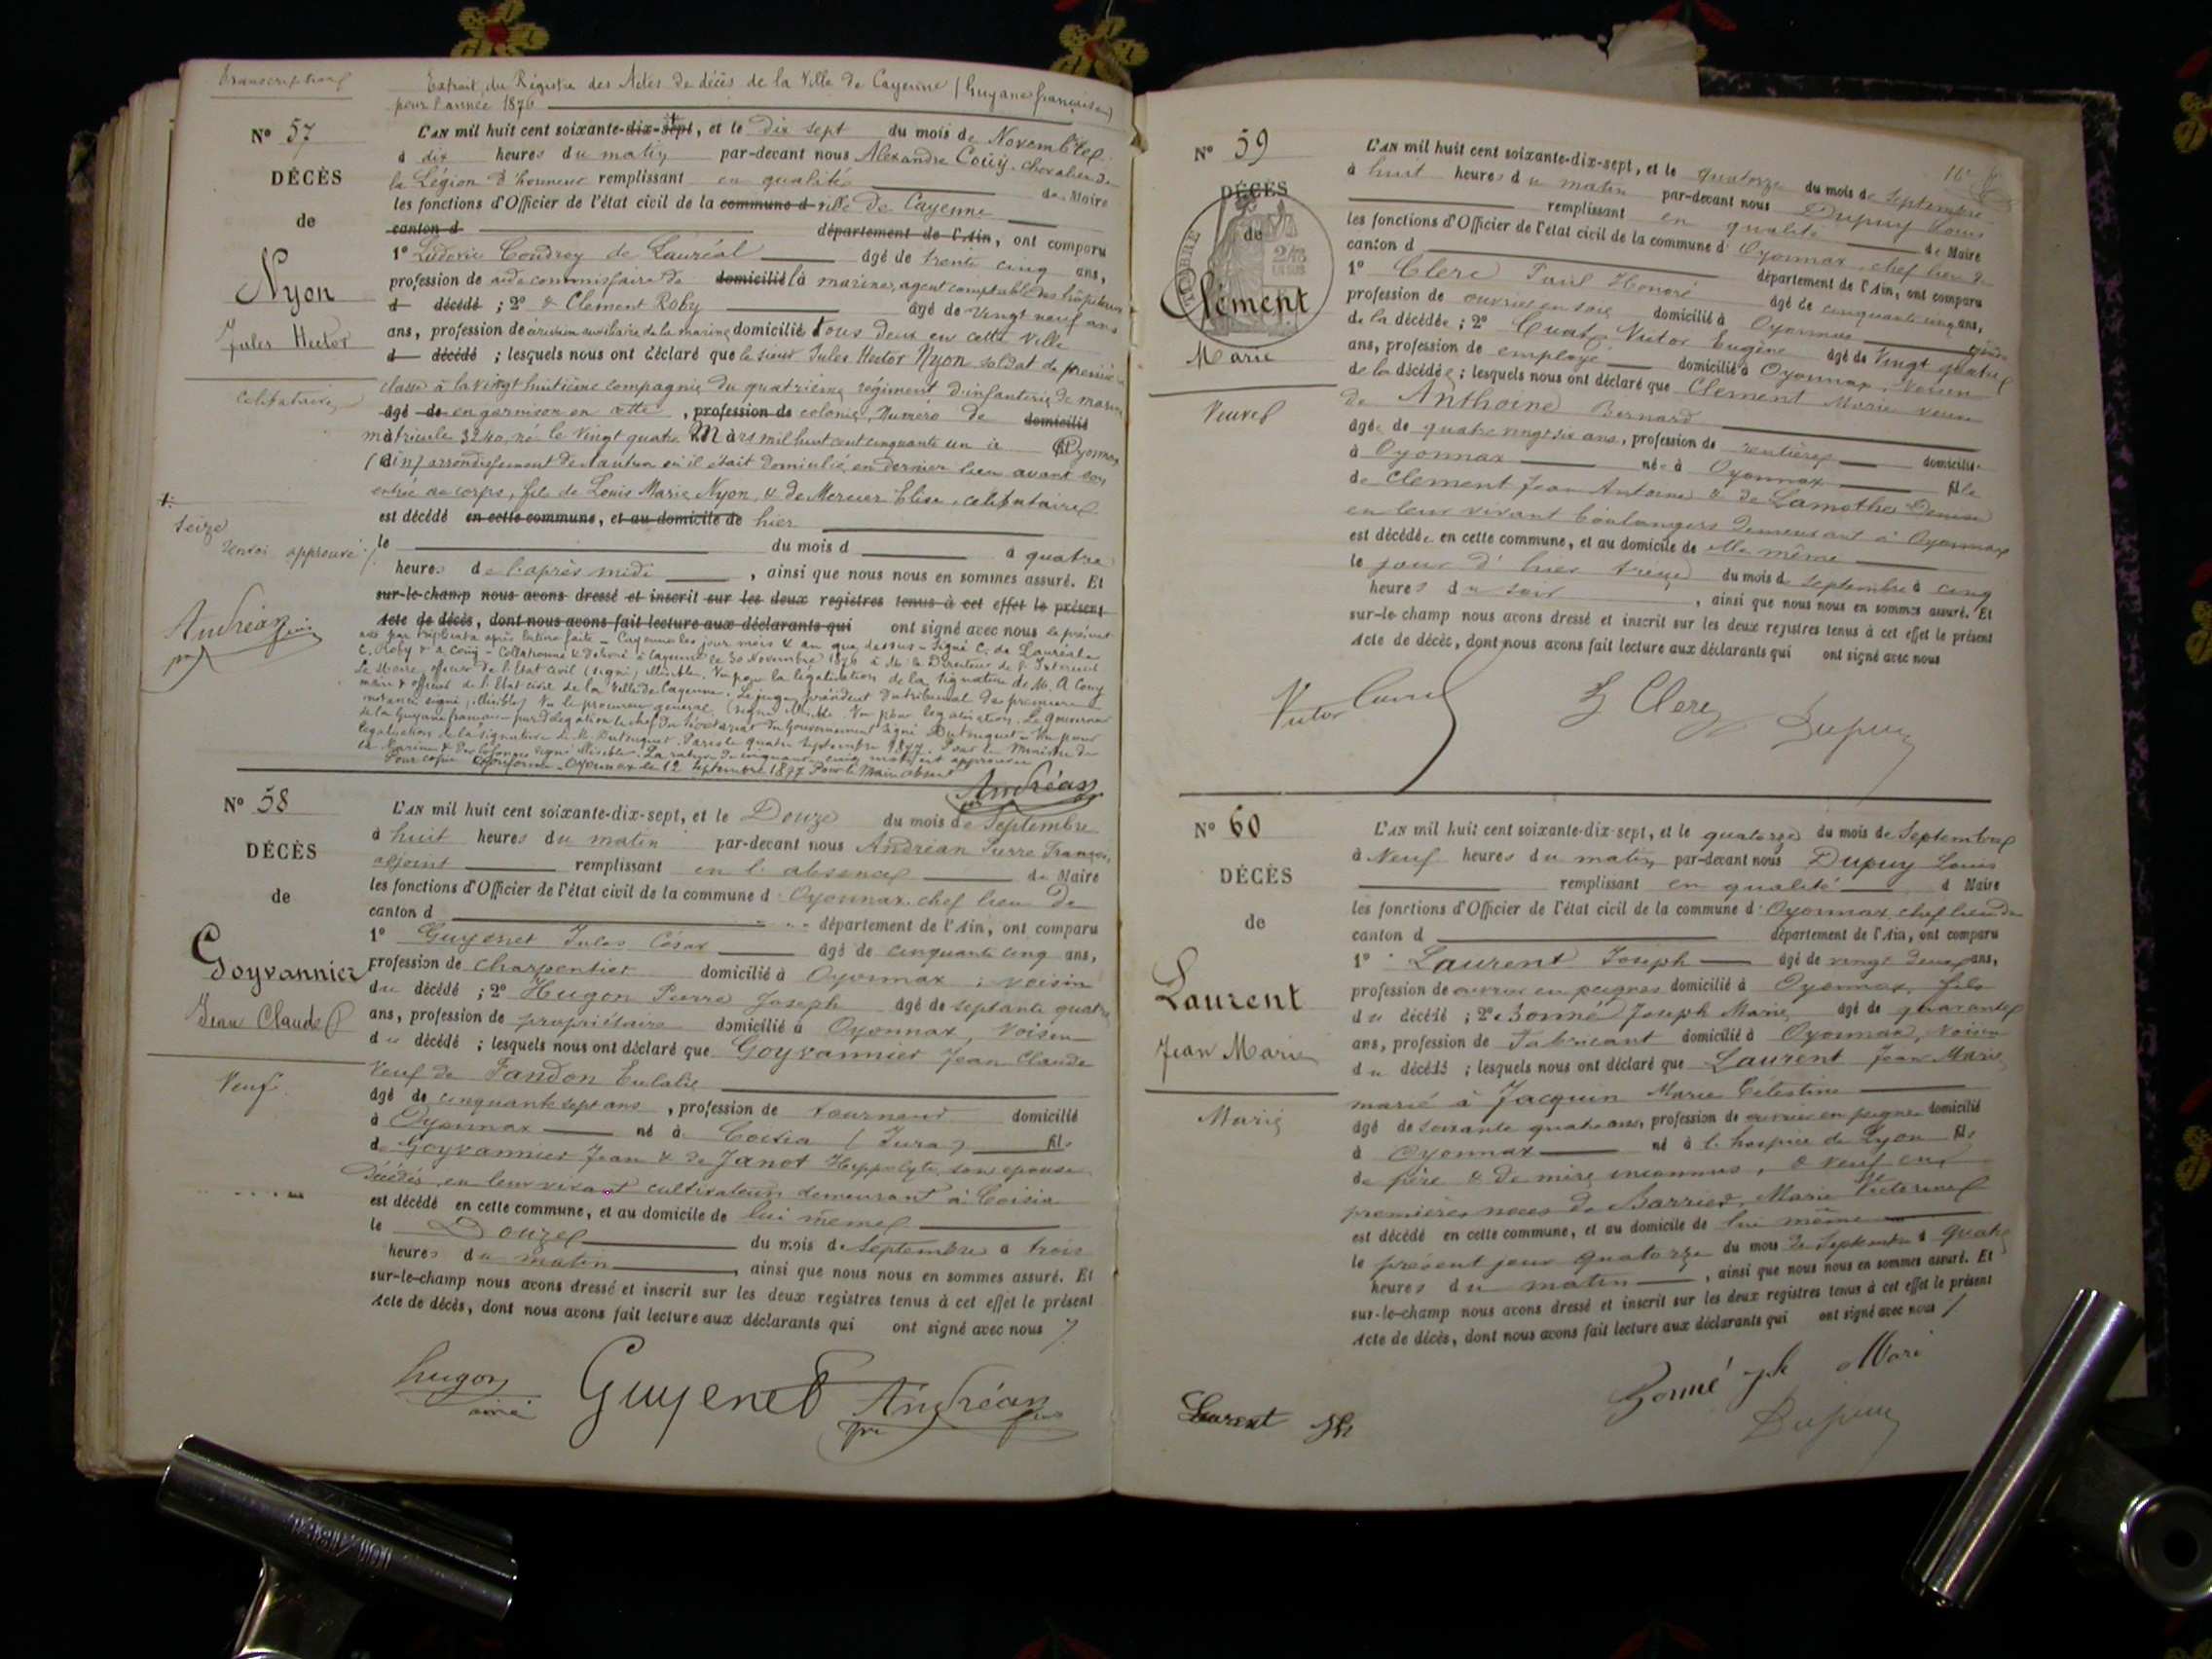 Transcription
Extrait du Régistre des Actes de décès de la Ville de Cayenne (Guyane française)
pour l'année 1876
N° 57
DÉCÈS
de
Nyon
Jules Hector
célibataire
+
seize
renvoi approuvé
Andréan
L'AN mil huit cent soixante-dix-sept, et le dix sept du mois de Novembre
à dix heures du matin par-devant nous Alexandre Coüy, chevalier de
la Légion d'honneur remplissant en qualité de Maire
les fonctions d'Officier de l'état civil de la commune d ville de Cayenne
canton d département de l'Ain, ont comparu
1° Ludovic Coudrey de Lauréal âgé de trente cinq ans,
profession de aide commissaire de domicilié la marine, agent comptable des hôpitaux
d décédé ; 2° & Clément Roby âgé de vingt neuf ans
ans, profession de écrivain auxiliaire de la marine domicilié tous deux en cette ville
d décédé ; lesquels nous ont déclaré que le sieur Jules Hector Nyon soldat de première
classe à la vingt huitième compagnie du quatrième régiment d'infanterie de marine
âgé de en garnison en cette , profession de colonie, Numéro de domicilié
matricule 3240, né le vingt quatre Mars mil huit cent cinquante un à Oyonnax
(Ain) arrondissement de Nantua où il était domicilié en dernier lieu avant son
entrée au corps, fils de Louis Marie Nyon, & de Mercier Elisa, célibataire
est décédé en cette commune, et au domicile de hier
le du mois d à quatre
heures de l'après midi , ainsi que nous nous en sommes assuré. Et
sur-le-champ nous avons dressé et inscrit sur les deux registres tenus à cet effet le présent
Acte de décès, dont nous avons fait lecture aux déclarants qui ont signé avec nous le présent
acte par triplicata après lecture faite - Cayenne les jour mois & an que dessus - Signé C. de Lauréal
C. Roby & A. Coüy - Collationné & délivré à Cayenne le 30 Novembre 1876 à Mr le Directeur de l'Intérieur
Le Maire, officier de l'Etat civil (signé) illisible. Vu pour la légalisation de la signature de M. A Coüy
maire & officier de l'Etat civil de la Ville de Cayenne. Le juge président du tribunal de première
instance signé (illisible) Vu le procureur général (signé) illisible. Vu pour légalisation. Le Gouverneur
de la Guyane française par délégation le chef du secrétariat du Gouvernement signé Dutruquet - Vu pour
légalisation de la signature de M. Dutruquet. Paris le quatre septembre 1877. Pour le Ministre de
la Marine & des Colonies signé illisible. La rature de cinquante mots est approuvée
Pour copie conforme. Oyonnax le 12 Septembre 1877 Pour le Maire absent
Andréan
N° 58
DÉCÈS
de
Goyvannier
Jean Claude
Veuf
L'AN mil huit cent soixante-dix-sept, et le Douze du mois de Septembre
à huit heures du matin par-devant nous Andréan Pierre François,
adjoint remplissant en l'absence du Maire
les fonctions d'Officier de l'état civil de la commune d'Oyonnax chef lieu de
canton d département de l'Ain, ont comparu
1° Guyenet Jules César âgé de cinquante cinq ans,
profession de charpentier domicilié à Oyonnax ; voisin
du décédé ; 2° Hugon Pierre Joseph âgé de septante quatre
ans, profession de propriétaire domicilié à Oyonnax, voisin
du décédé ; lesquels nous ont déclaré que Goyvannier Jean Claude
Veuf de Tandon Eulalie
âgé de cinquante sept ans , profession de tourneur domicilié
à Oyonnax né à Coisia (Jura) fils
de Goyvannier Jean & de Janot Heppolyte, son épouse
décédés, en leur vivant cultivateurs demeurant à Coisia
est décédé en cette commune, et au domicile de lui même
le Douze du mois de Septembre à trois
heures du matin , ainsi que nous nous en sommes assuré. Et
sur-le-champ nous avons dressé et inscrit sur les deux registres tenus à cet effet le présent
Acte de décès, dont nous avons fait lecture aux déclarants qui ont signé avec nous
hugon
ainé
Guyenet
Andréan
16
N° 59
DÉCÈS
de
Clément
Marie
Veuve
L'AN mil huit cent soixante-dix-sept, et le quatorze du mois de Septembre
à huit heures du matin par-devant nous Dupuy Louis
remplissant en qualité de Maire
les fonctions d'Officier de l'état civil de la commune d'Oyonnax, chef lieu de
canton d département de l'Ain, ont comparu
1° Clerc Paul Honoré âgé de cinquante cinq ans,
profession de ouvrier en soie domicilié à Oyonnax
de la décédée ; 2° Cuaz Victor Eugène âgé de Vingt quatre
ans, profession de employé domicilié à Oyonnax, Voisin
de la décédée ; lesquels nous ont déclaré que Clément Marie veuve
de Anthoine Bernard
âgée de quatre vingt six ans, profession de rentière domiciliée
à Oyonnax née à Oyonnax fille
de Clément Jean Antoine & de Lamothe Denise
en leur vivant boulangers demeurant à Oyonnax
est décédée en cette commune, et au domicile de elle même
le jour d'hier treize du mois de septembre à cinq
heures du soir , ainsi que nous nous en sommes assuré. Et
sur-le-champ nous avons dressé et inscrit sur les deux registres tenus à cet effet le présent
Acte de décès, dont nous avons fait lecture aux déclarants qui ont signé avec nous
Victor
Clerc
Dupuy
N° 60
DÉCÈS
de
Laurent
Jean Marie
Marié
L'AN mil huit cent soixante-dix-sept, et le quatorze du mois de Septembre
à Neuf heures du matin par-devant nous Dupuy Louis
remplissant en qualité d Maire
les fonctions d'Officier de l'état civil de la commune d'Oyonnax, chef lieu de
canton d département de l'Ain, ont comparu
1° Laurent Joseph âgé de vingt deux ans,
profession de ouvrier en peignes domicilié à Oyonnax, fils
du décédé ; 2° Bonné Joseph Marie âgé de quarante
ans, profession de Fabricant domicilié à Oyonnax, Voisin
du décédé ; lesquels nous ont déclaré que Laurent Jean Marie
marié à Jacquin Marie Célestine
âgé de soixante quatre ans, profession de ouvrier en peignes domicilié
à Oyonnax né à l'hospice de Lyon fils
de père & de mère inconnus, & Veuf en
premières noces de Barrier, Marie Victorine
est décédé en cette commune, et au domicile de lui même
le présent jour quatorze du mois de Septembre à quatre
heures du matin , ainsi que nous nous en sommes assuré. Et
sur-le-champ nous avons dressé et inscrit sur les deux registres tenus à cet effet le présent
Acte de décès, dont nous avons fait lecture aux déclarants qui ont signé avec nous
Laurent Jh
Bonné jph Mari
Dupuy